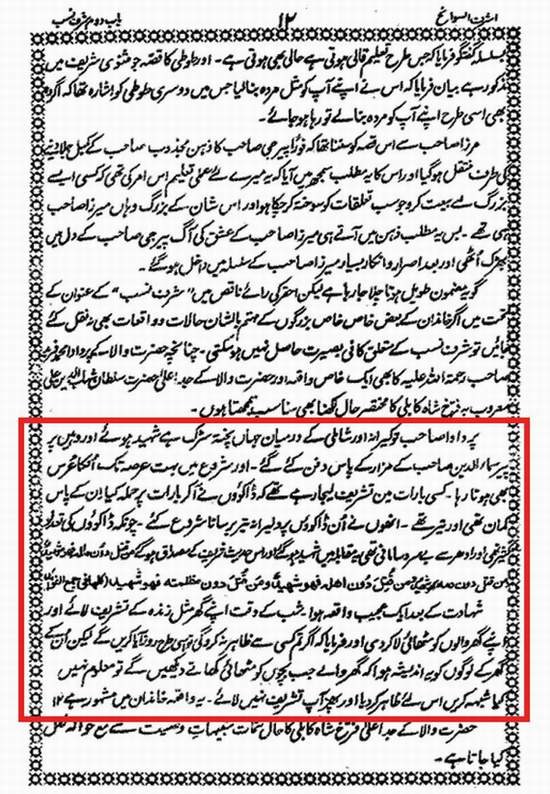 اشرف السوانح ۱۲ باب دوم شرف نسب
بسلسلہ گفتگو فرمایا کہ جس طرح تعلیم قالی ہوتی ہے حالی بھی ہوتی ہے۔ اور طوطی کا قصہ جو مثنوی شریف میں
مذکور ہے بیان فرمایا کہ اس نے اپنے آپ کو مثل مردہ بنا لیا جس میں دوسری طوطی کو اشارہ تھا کہ اگر تو
بھی اسی طرح اپنے آپ کو مردہ بنالے تو رہا ہو جائے۔
مرزا صاحب سے اس قصہ کو سننا تھا کہ فوراً پیر جی صاحب کا ذہن مجذوب صاحب کے کمبل جلا دینے
کی طرف منتقل ہو گیا اور اس کا یہ مطلب سمجھ میں آیا کہ یہ میرے لئے عملی تعلیم اس امر کی تھی کہ کسی ایسے
بزرگ سے بیعت کرو جو سب تعلقات کو سوختہ کر چکا ہو اور اس شان کے بزرگ وہاں میرزا صاحب
ہی تھے۔ بس یہ مطلب ذہن میں آتے ہی میرزا صاحب کے عشق کی آگ پیر جی صاحب کے دل میں
بھڑک اُٹھی اور بعد اصرار و انکار بسیار میرزا صاحب کے سلسلہ میں داخل ہو گئے۔
گو یہ مضمون طویل ہوتا چلا جا رہا ہے لیکن احقر کی رائے ناقص میں ”شرف نسب“ کے عنوان کے
تحت میں اگر خاندان کے بعض خاص خاص بزرگوں کے مہتم بالشان حالات و واقعات بھی نہ نقل کئے
جائیں تو شرف نسب کے متعلق کافی بصیرت حاصل نہیں ہو سکتی۔ چنانچہ حضرت والا کے پردادا محمد فرید
صاحب رحمۃ اللہ علیہ کا بھی ایک خاص واقعہ اور حضرت والا کے جد اعلیٰ حضرت سلطان شہاب الدین علی
معروف بہ فرخ شاہ کابلی کا مختصر حال لکھنا بھی مناسب سمجھتا ہوں۔
پردادا صاحب کیرانہ اور شاملی کے درمیان جہاں پختہ سڑک ہے شہید ہوئے اور وہیں پر
پیر سماء الدین صاحب کے مزار کے پاس دفن کئے گئے۔ اور شروع میں بہت عرصہ تک اُنکا عرس
بھی ہوتا رہا۔ کسی بارات میں تشریف لیجا رہے تھے کہ ڈاکوؤں نے آکر بارات پر حملہ کیا اِن کے پاس
کمان تھی اور تیر تھے۔ انھوں نے اُن ڈاکوؤں پر دلیرانہ تیر برسانا شروع کئے۔ چونکہ ڈاکوؤں کی تعداد
کثیر تھی اور ادھر سے بے سروسامانی تھی یہ مقابلہ میں شہید ہو گئے اور اس حدیث شریف کے مصداق ہوگئے من قتل دون مالہ فھو شھید
من قتل دون دمہ ومن قتل دون اھلہ فھو شھید ومن قتل دون مظلمتہ فھو شھید (کلھا فی جمع الفوائد)
شہادت کے بعد ایک عجیب واقعہ ہوا۔ شب کے وقت اپنے گھر مثل زندہ کے تشریف لائے اور
اپنے گھر والوں کو مٹھائی لا کر دی اور فرمایا کہ اگر تم کسی سے ظاہر نہ کرو گی تو اسی طرح روز آیا کریں گے لیکن اُن کے
گھر کے لوگوں کو یہ اندیشہ ہوا کہ گھر والے جب بچوں کو مٹھائی کھاتے دیکھیں گے تو معلوم نہیں
کیا شبہ کریں اس لئے ظاہر کر دیا اور پھر آپ تشریف نہیں لائے۔ یہ واقعہ خاندان میں مشہور ہے ۱۲
حضرت والا کے جد اعلیٰ فرخ شاہ کابلی کا حال تنبیہات وصیت سے مع حوالہ نقل
کیا جاتا ہے۔